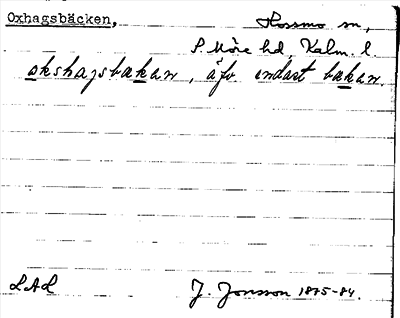 Oxhagsbäcken, Hossmo sn,
S. Möre hd, Kalm. l
okshagsbækan, äfv endast bækan.
LAL J. Jonsson 1875-84.